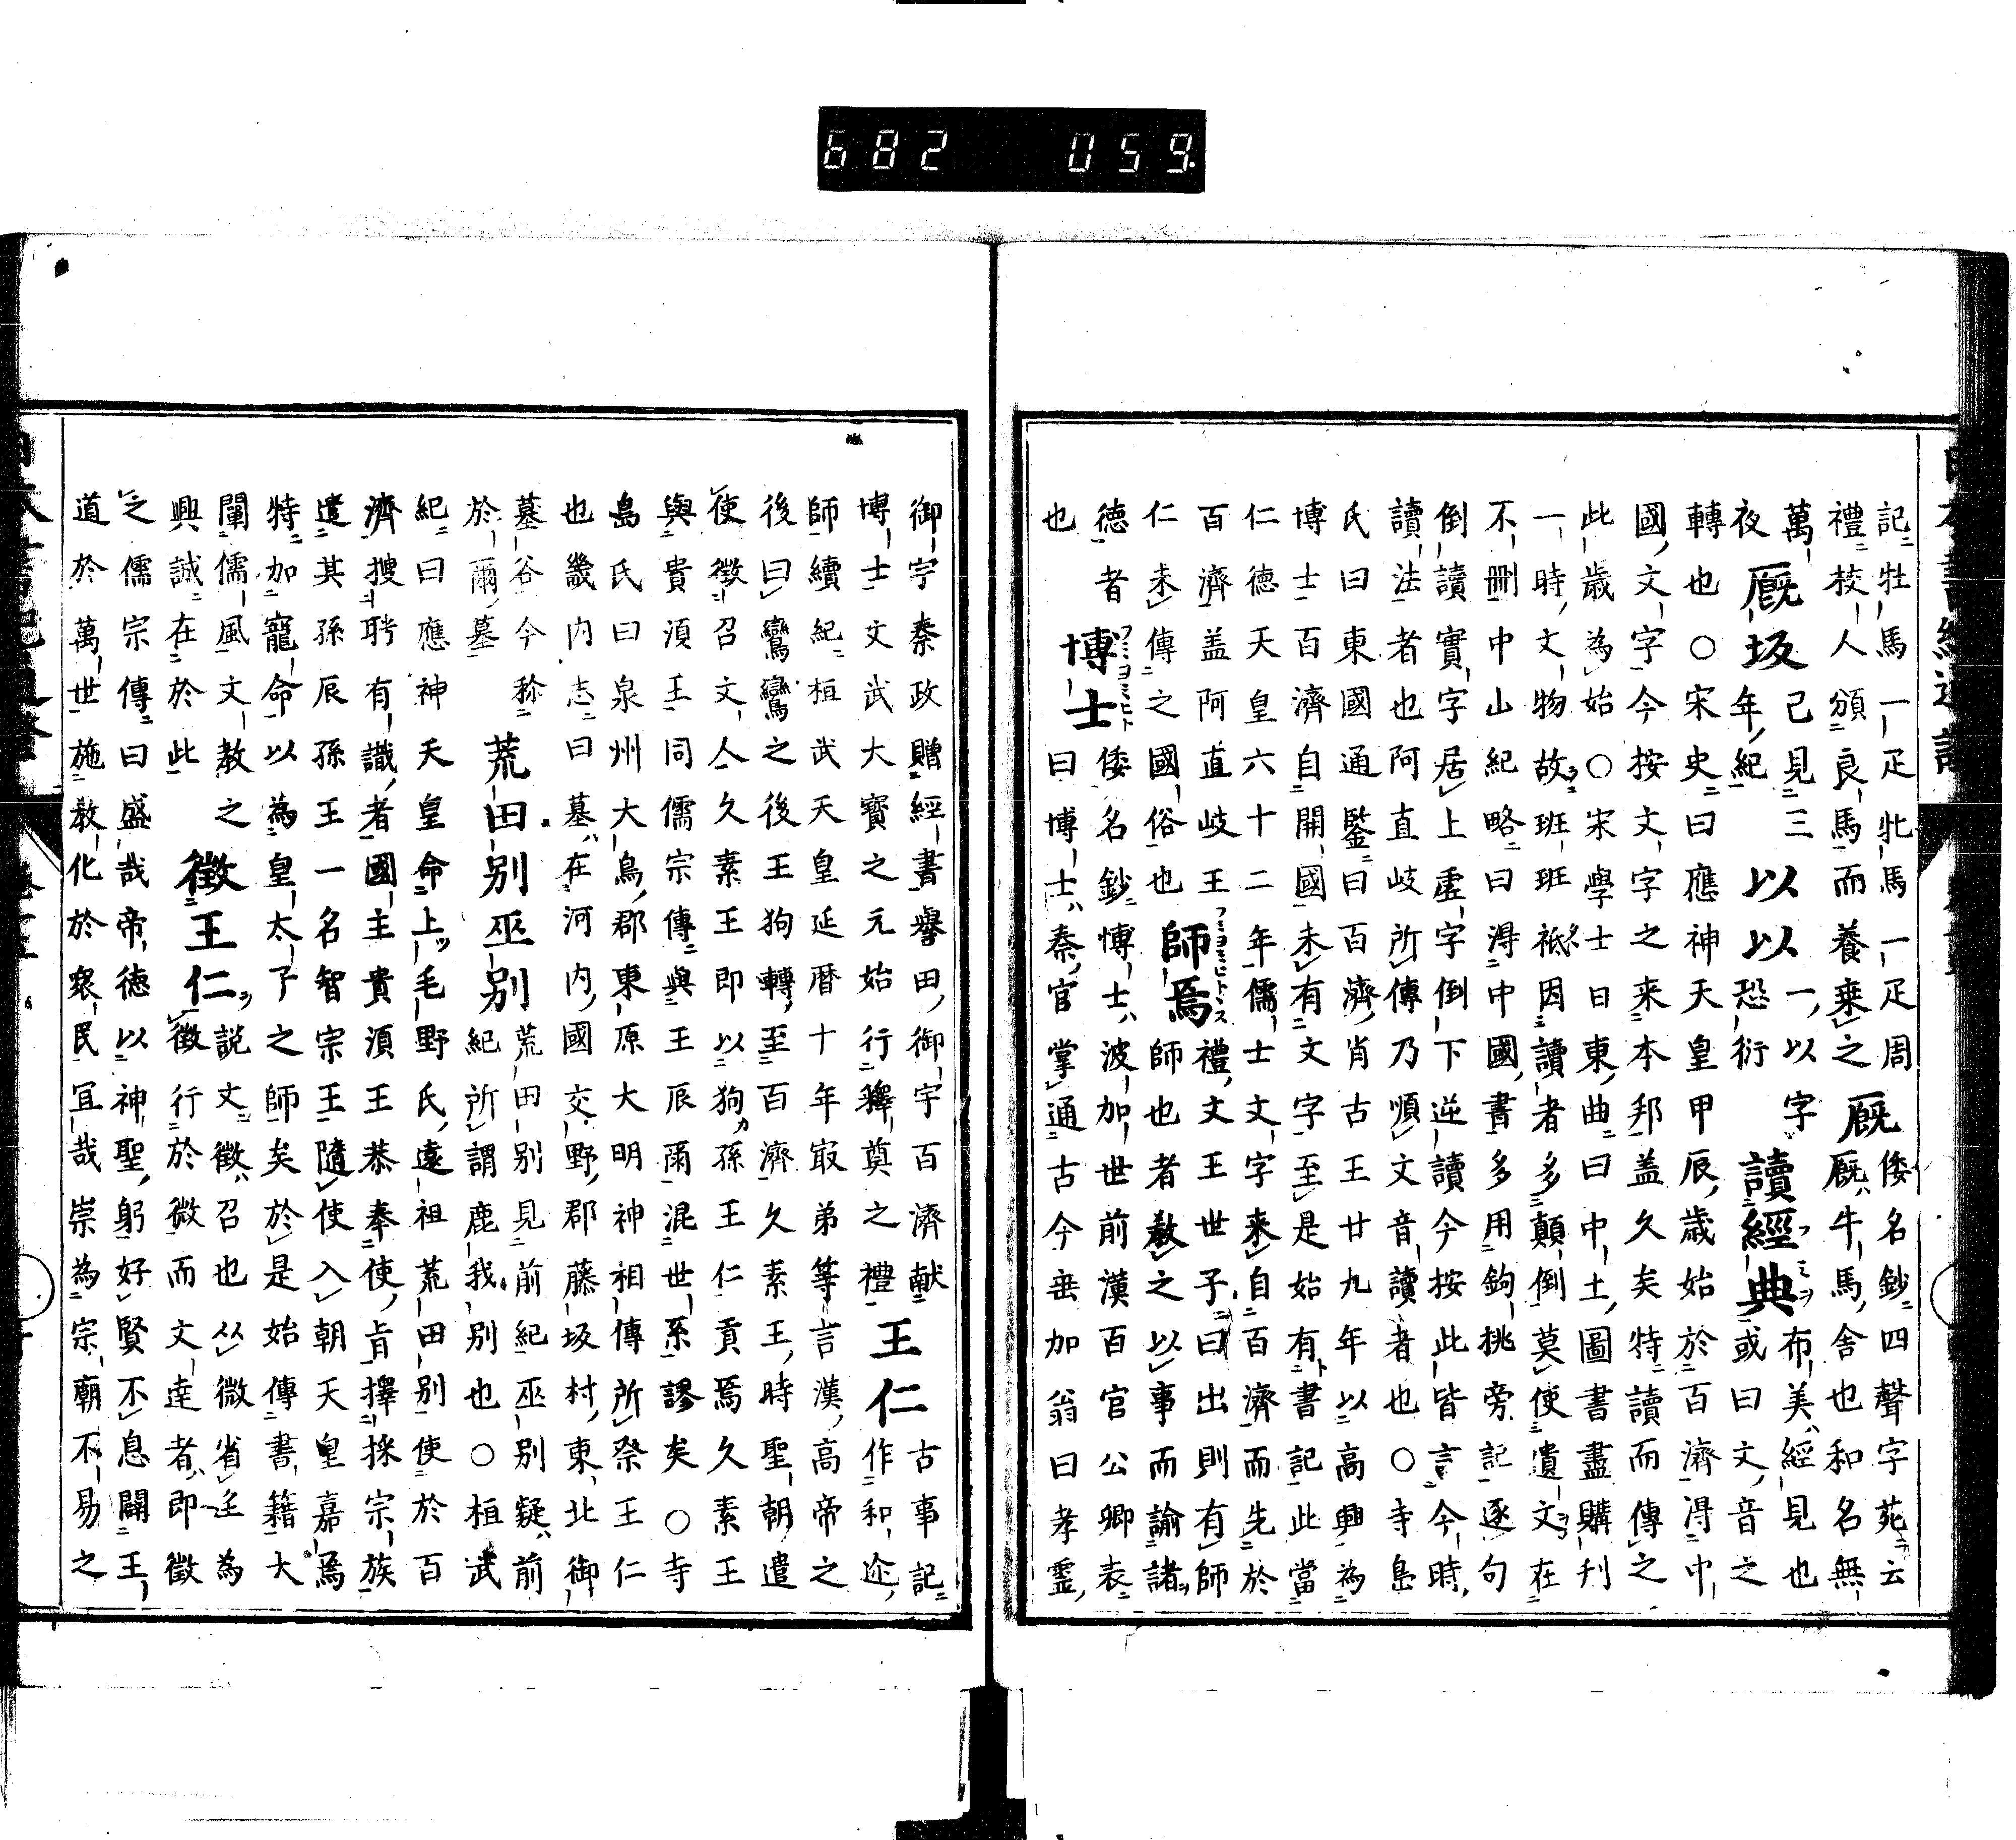 682 059
記牡馬一疋牝馬一疋周廐倭名鈔四聲字苑云
禮校人頒良馬而養乗之廐牛馬舎也和名無
萬夜廐坂己見三年紀以以一以字恐衍讀經典布美經見也或曰文音之
轉也○宋史曰應神天皇甲辰歳始於百濟淂中
國文字今按文字之来本邦盖久矣特讀而傳之
此歳為始○宋學士日東曲曰中土圖書盡購刋
一時文物故班班祗因讀者多顛倒莫使遺文在
不刪中山紀略曰淂中國書多用鉤挑旁記逐句
倒讀實字居上虚字倒下逆讀今按此皆言今時
讀法者也阿直岐所傳乃順文音讀者也○寺島
氏曰東國通鑒曰百濟肖古王廿九年以高興為
博士百濟自開國未有文字至是始有書記此當
仁德天皇六十二年儒士文字来自百濟而先於
百濟盖阿直岐王師焉禮文王世子曰出則有師
仁来傳之國俗也師也者教之以事而諭諸
德者博士倭名鈔博士波加世前漢百官公卿表
也曰博士秦官掌通古今垂加翁曰孝靈
御宇秦政贈經書譽田御宇百濟献王仁古事記
博士文武大寳之元始行釋奠之禮作和迩
師續紀桓武天皇延暦十年㝡弟等言漢高帝之
後曰鸞鸞之後王狗轉至百濟久素王時聖朝遣
使徴召文人久素王即以狗孫王仁貢焉久素王
與貴湏王同儒宗傳與王辰爾混世系謬矣○寺
島氏曰泉州大鳥郡東原大明神相傳所祭王仁
也畿内志曰墓在河内國交野郡藤坂村東北御
墓谷今稱荒田別巫別荒田別見前紀巫別疑前
於爾墓紀所謂鹿我別也○桓武
紀曰應神天皇命上毛野氏遠祖荒田別使於百
濟捜聘有識者國主貴湏王恭奉使㫖擇採宗族
遣其孫辰孫王一名智宗王隨使入朝天皇嘉焉
特加寵命以為皇太子之師矣於是始傳書籍大
闡儒風文教之興誠在於此徴王仁説文徴召也从微省𡈼為徴行於微而文達者即徴
之儒宗傳曰盛哉帝德以神聖躬好賢不息闢王
道於萬世施教化於衆民宜哉崇為宗廟不易之